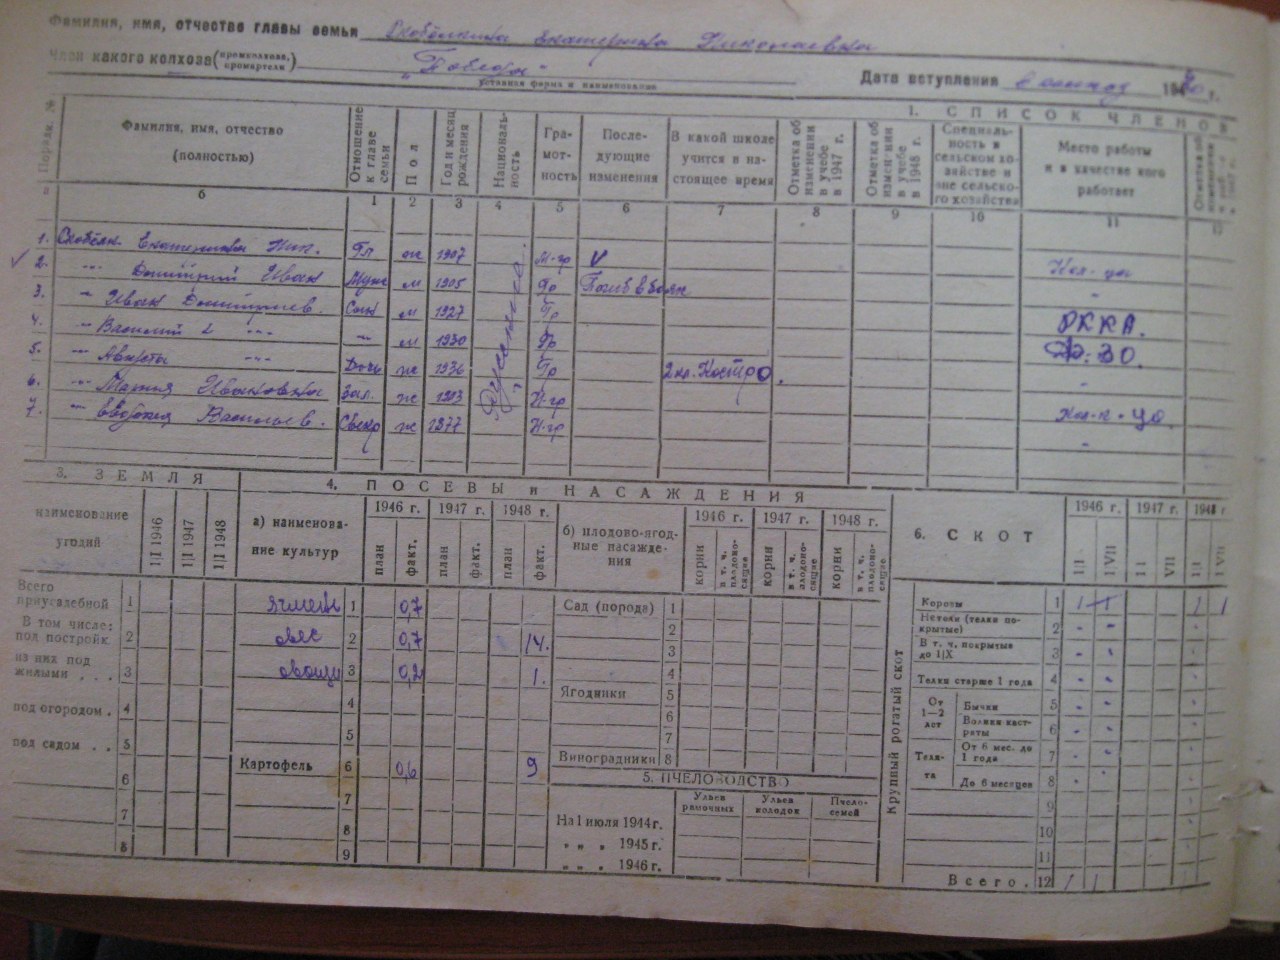 Фамилия, имя, отчество главы семьи Скобелкина Екатерина Николаевна
Член какого колхоза (промколхоза, промартели) "Победа"
уставная форма и наименование
Дата вступления 19 г.
1. СПИСОК ЧЛЕНОВ
Порядк. №
Фамилия, имя, отчество (полностью)
Отношение к главе семьи
Пол
Год и месяц рождения
Националь-ность
Гра-мот-ность
После-дующие изменения
В какой школе учится в на-стоящее время
Отметка об изменении в учебе в 1947 г.
Отметка об измен-ии в учебе в 1948 г.
Специаль-ность в сельском хо-зяйстве и вне сельско-го хозяйства
Место работы и в качестве кого работает
Отметка об
б 1 2 3 4 5 6 7 8 9 10 11 12
1. Екатерина Ник. Гл ж 1907 М-гр V
2. -"- Дмитрий Иван Муж м 1905 Гр Погиб в боях -
3. -"- Иван Дмитриев. Сын м 1927 Гр РККА.
4. -"- Василий -"- м 1930 Гр
5. -"- -"- Дочь ж 1936 Гр 2 кл. Костро. -
6. -"- Мария Ивановна Зол. ж Н-гр
7. -"- Васильев. Свекр ж 1877 Н-гр -
3. ЗЕМЛЯ
наименование угодий
1|I 1946
1|I 1947
1|I 1948
Всего приусадебной 1
В том числе: под постройк. 2
из них под жилыми . . . 3
под огородом . 4
под садом . . 5
6
7
8
4. ПОСЕВЫ и НАСАЖДЕНИЯ
а) наименова-ние культур
1946 г. 1947 г. 1948 г.
план факт. план факт. план факт.
ячмень 1 0,7
овес 2 0,7 14.
овощи 3 0,2 1.
4
5
Картофель 6 0,6 9
7
8
9
б) плодово-ягод-ные насажде-ния
1946 г. 1947 г. 1948 г.
корни в т. ч. плодоно-сящие корни в т. ч. плодоно-сящие корни в т. ч. плодоно-сящие
Сад (порода) 1
2
3
4
Ягодники 5
6
7
Виноградники 8
5. ПЧЕЛОВОДСТВО
Ульев рамочных
Ульев колодок
Пчело-семей
На 1 июля 1944 г.
" " " 1945 г.
" " " 1946 г.
6. СКОТ
1946 г. 1947 г. 1948 г.
1|I 1|VII 1|I VII 1|I 1|VII
Крупный рогатый скот
Коровы 1 1 1 1 1
Нетели (телки по-крытые) 2 - -
В т. ч. покрытые до 1|IX 3 - -
Телки старше 1 года 4 - -
От 1—2 лет
Бычки 5 - -
Волики каст-раты 6 - -
Теля-та
От 6 мес. до 1 года 7 - -
До 6 месяцев 8 - -
9
10
11
Всего. 12 1 1